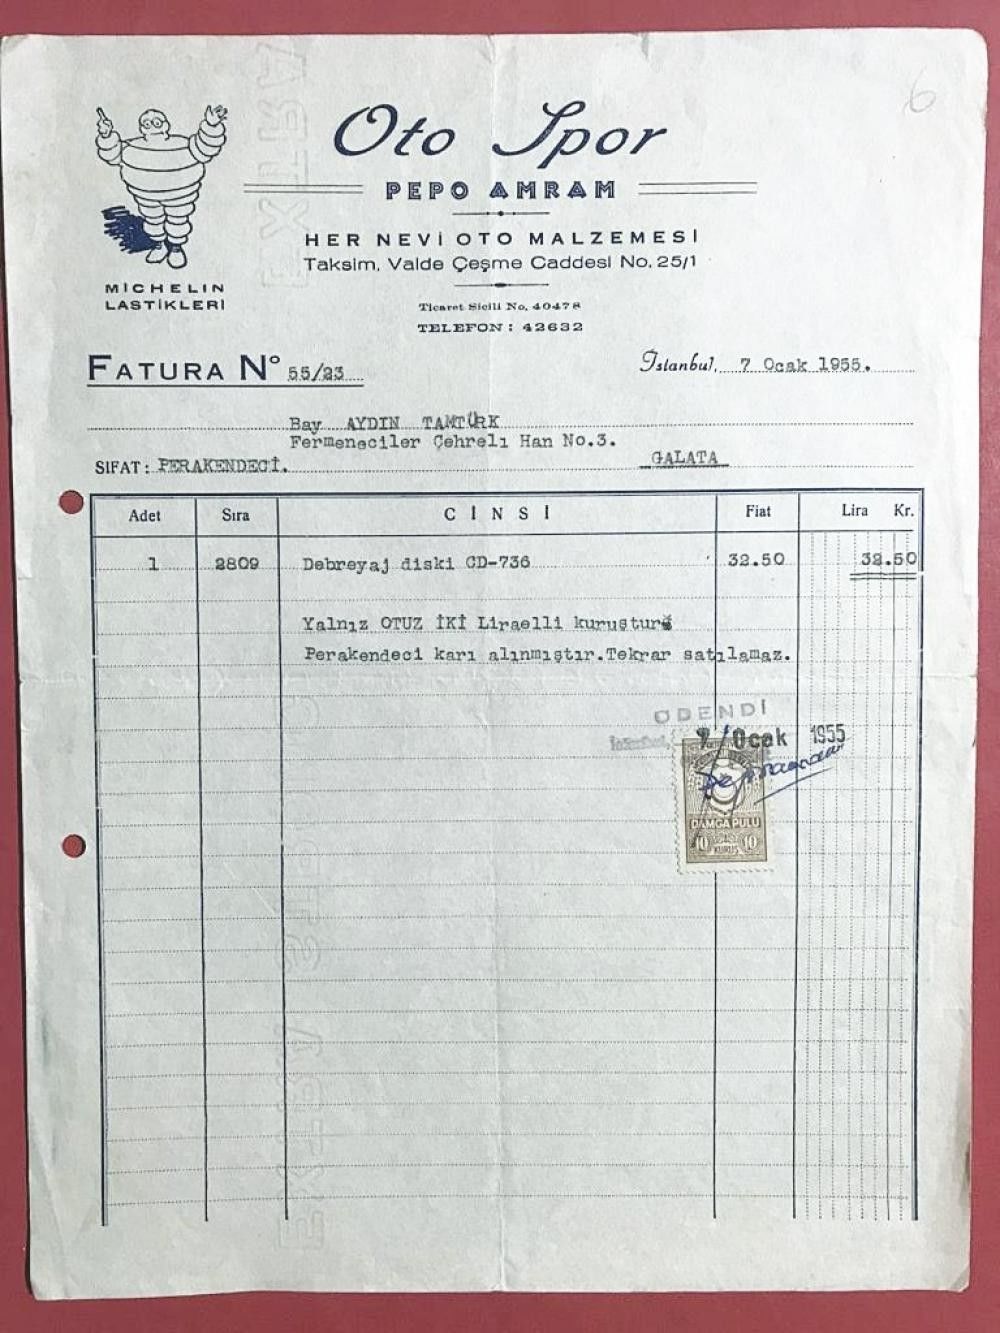 6
Oto Spor
PEPO AMRAM
HER NEVİ OTO MALZEMESİ
Taksim, Valde Çeşme Caddesi No. 25/1
MICHELIN
LASTİKLERİ
Ticaret Sicili No. 40478
TELEFON : 42632
FATURA Nº 55/23
İstanbul, 7 Ocak 1955.
Bay AYDIN TAMTÜRK
Fermeneciler Çehreli Han No.3.
SIFAT: PERAKENDECİ. GALATA
Adet Sıra CİNSİ Fiat Lira Kr.
1 2809 Debreyaj diski CD-736 32.50 32.50
Yalnız OTUZ İKİ Liraelli kuruştur
Perakendeci karı alınmıştır.Tekrar satılamaz.
ÖDENDİ
İstanbul, 7 Ocak 1955
DAMGA PULU
10 KURUŞ 10
EXTRA
EXTRA